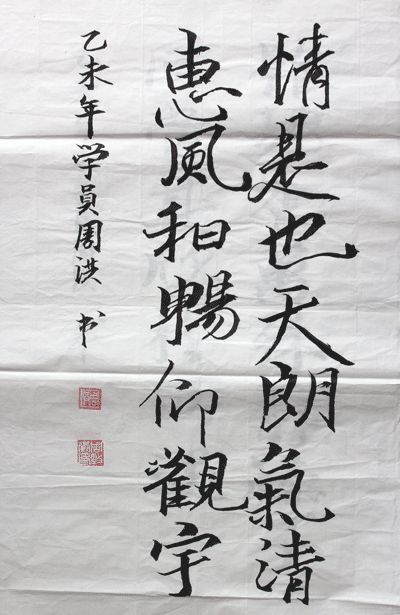 情是也天朗氣清
惠風和暢仰觀宇
乙未年学員周洪书